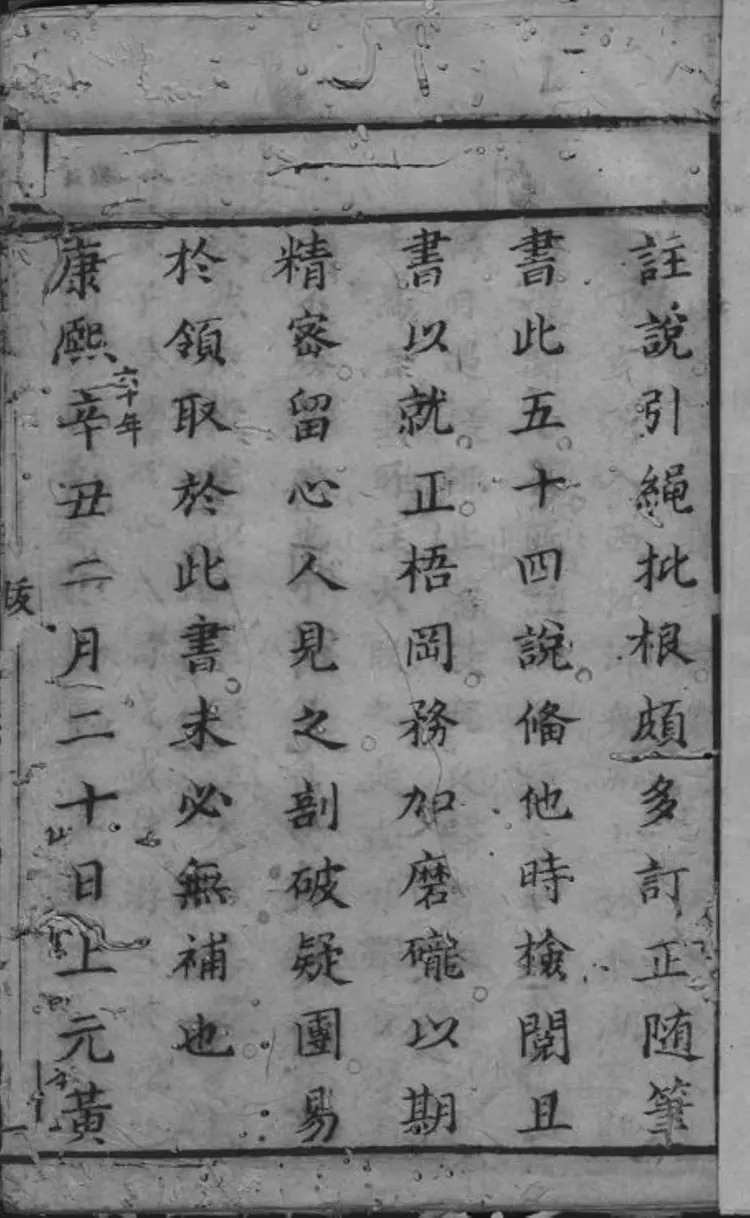 註說引繩批根頗多訂正随筆
書此五十四說俻他時檢閱且
書以就正梧岡務加磨礲以期
精宻留心人見之剖破疑團易
於領取於此書未必無補也
康熈辛丑二月二十日上元黃
六十年